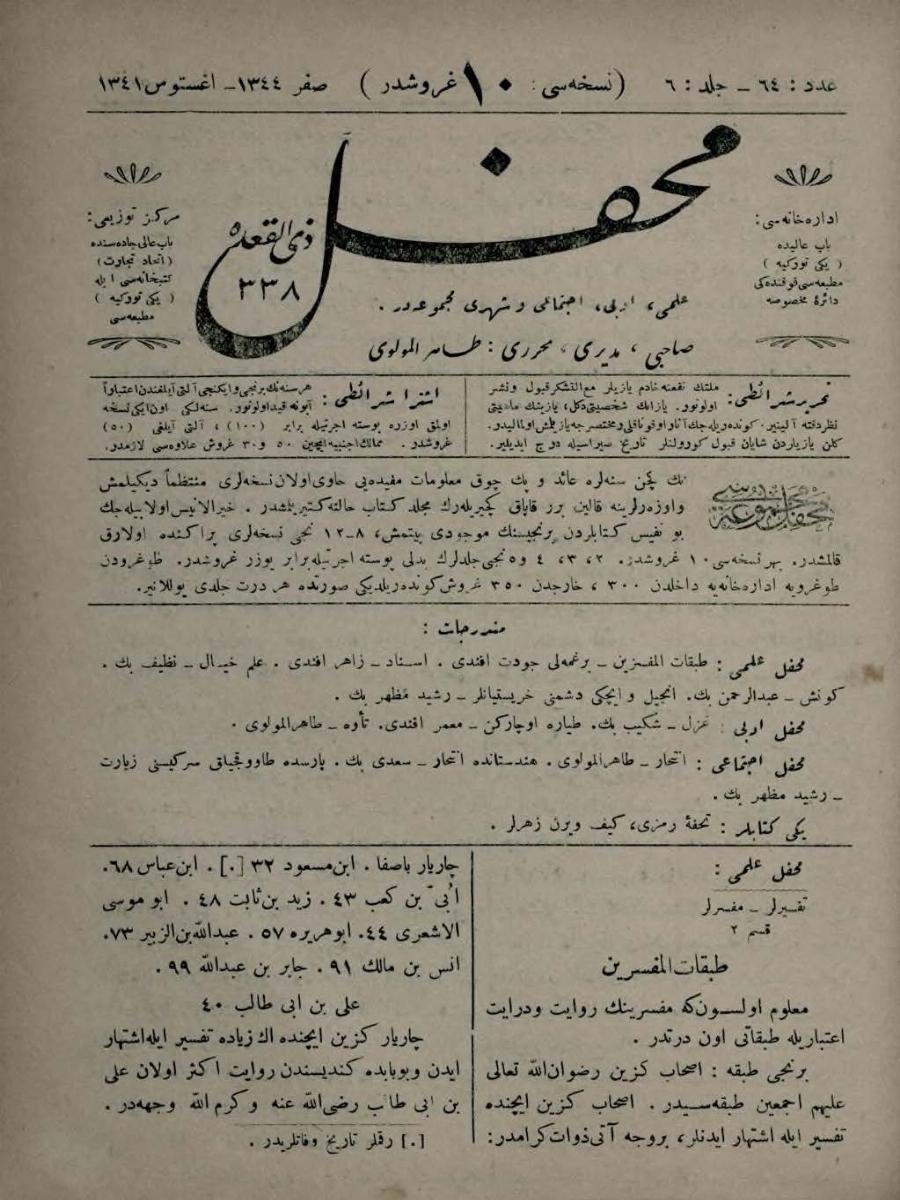 عدد : ٦٤ – جلد : ٦ (نسخه‌سی : ١٠ غروشدر) صفر ١٣٤٤ – اغستوس ١٣٤١
محفل
ذی القعده
٣٣٨
اداره‌خانه‌سی :
باب عالیده
( یکی تورکیه )
مطبعه‌سی فوقنده‌کی
دائرهٔ مخصوصه
علمی ، ادبی ، اجتماعی و شهری مجموعه‌در .
صاحبی ، مدیری ، محرری : طاهر المولوی
مرکز توزیعی :
باب عالی جاده‌سنده
(اتحاد تجارت)
کتبخانه‌سی ایله
( یکی تورکیه )
مطبعه‌سی
تحریر شرائطی : ملتك نفعنه خادم یازیلر مع التشکر قبول ونشر
اولونور . یازانك شخصیتی دکل ، یازینك ماهیتی
نظردقته آلینیر . کوندریله‌جك آثار اوقوناقلی ومختصرجه یازیلمش اولمالیدر .
کلن یازیلردن شایان قبول کورولنلر تاریخ صیراسیله درج ایدیلیر .
اشترا شرائطی : هر سنه‌نك برنجی وایکنجی آلتی آیلغندن اعتباراً
آبونه قید اولونور . سنه‌لکی اون ایکی نسخه
اولمق اوزره پوسته اجرتیله برابر (١٠٠) ، آلتی آیلغی (٥٠)
غروشدر . ممالك اجنبیه ایچین ٥٠ و ٣٠ غروش علاوه‌سی لازمدر .
محفل مجموعه‌سی نك کچن سنه‌لره عائد و پك چوق معلومات مفیده‌یی حاوی اولان نسخه‌لری منتظماً دیکیلمش
واوزه‌رلرینه قالین برر قاپاق کچیریله‌رك مجلد کتاب حالنه کتیریلمشدر . خیرالانیس اولابیله‌جك
بو نفیس کتابلردن برنجیسنك موجودی بیتمش ، ٨-١٢ نجی نسخه‌لری پراکنده اولارق
قالمشدر . بهر نسخه‌سی ١٠ غروشدر . ٢ ، ٣ ، ٤ و ٥ نجی جلدلرك بدلی پوسته اجرتیله برابر یوزر غروشدر . طوغرودن
طوغرویه اداره‌خانه‌یه داخلدن ٣٠٠ ، خارجدن ٣٥٠ غروش کوندریلدیکی صورتده هر درت جلدی یوللانیر .
مندرجات :
محفل علمی : طبقات المفسرین – برغمه‌لی جودت افندی . اسناد – زاهر افندی . علم خیال – نظیف بك .
کونش – عبدالرحمن بك . انجیل و ایچکی دشمنی خریستیانلر – رشید مظهر بك .
محفل ادبی : غزل – شکیب بك . طیاره اوچارکن – معمر افندی . تأوه – طاهر المولوی .
محفل اجتماعی : انتحار – طاهر المولوی . هندستانده انتحار – سعدی بك . پارسده طاووقجیلق سرکیسنی زیارت
– رشید مظهر بك .
یکی کتابلر : تحفهٔ رمزی ، کیف ویرن زهرلر .
محفل علمی :
تفسیرلر – مفسرلر
قسم ٢
طبقات المفسرین
معلوم اولسون‌که مفسرینك روایت ودرایت
اعتباریله طبقاتی اون درتدر .
برنجی طبقه : اصحاب کزین رضوان‌الله تعالی
علیهم اجمعین طبقه‌سیدر . اصحاب کزین ایچنده
تفسیر ایله اشتهار ایدنلر ، بروجه آتی ذوات کرامدر :
چاریار باصفا . ابن مسعود ٣٢ [٠] . ابن عباس ٦٨ .
اُبیّ بن کعب ٤٣ . زید بن ثابت ٤٨ . ابو موسی
الاشعری ٤٤ . ابو هریره ٥٧ . عبدالله بن الزبیر ٧٣ .
انس بن مالك ٩١ . جابر بن عبدالله ٩٩ .
علی بن ابی طالب ٤٠
چاریار کزین ایچنده اك زیاده تفسیر ایله اشتهار
ایدن وبوبابده کندیسندن روایت اکثر اولان علی
بن ابی طالب رضی الله عنه و کرم الله وجهه‌در .
[٠] رقملر تاریخ وفاتلریدر .